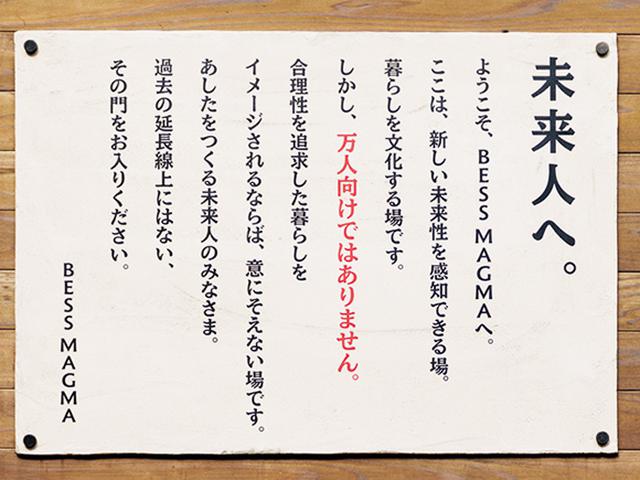 未来人へ。
ようこそ、BESS MAGMAへ。
ここは、新しい未来性を感知できる場。
暮らしを文化する場です。
しかし、万人向けではありません。
合理性を追求した暮らしを
イメージされるならば、意にそえない場です。
あしたをつくる未来人のみなさま。
過去の延長線上にはない、
その門をお入りください。
BESS MAGMA